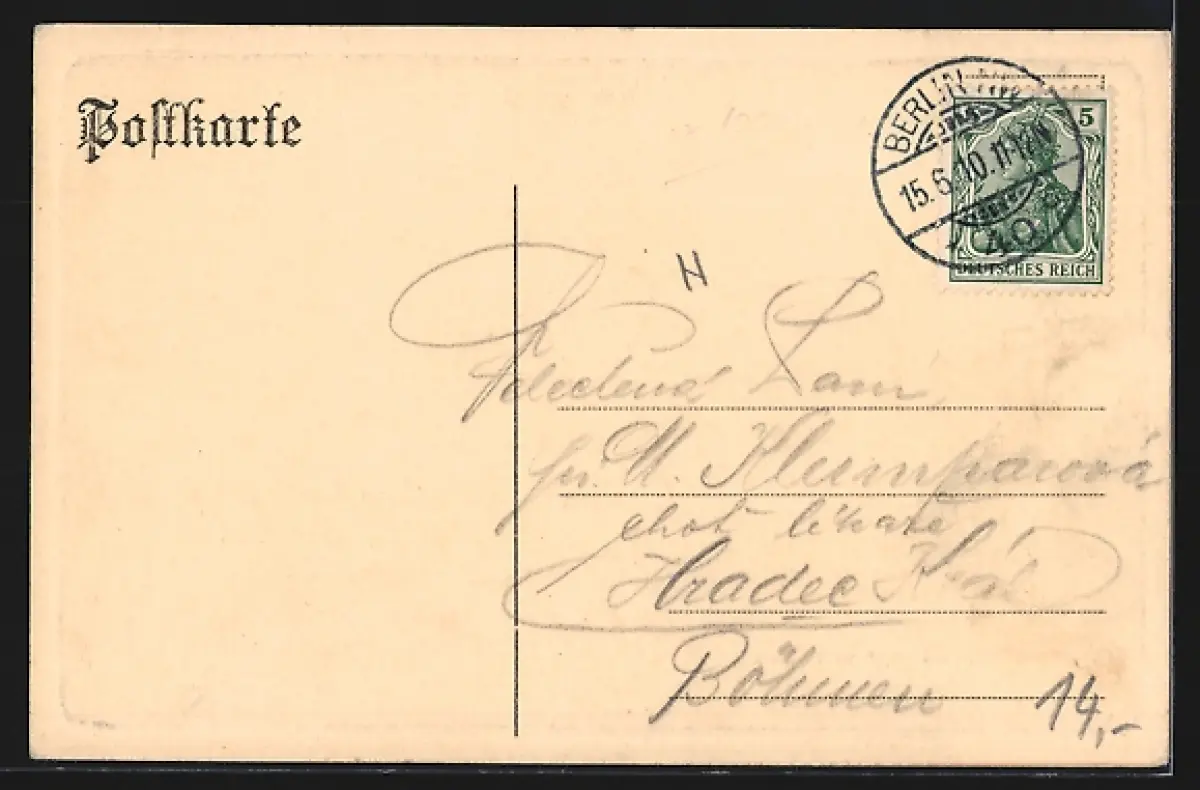 Postkarte
BERLIN
15.6.10.11-12N
* 40
5
DEUTSCHES REICH
N
Dam
M. Klumparová
choť lékaře
Hradec Král
Böhmen
14,-